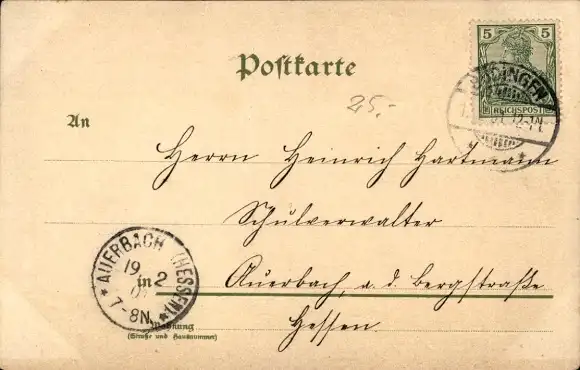 Postkarte
5
REICHSPOST
BÜDINGEN
25.-
An
Herrn Heinrich Hartmann
Schulverwalter
AUERBACH (HESSEN)
19
2
7-8N.
in Auerbach, a. d. Bergstraße
Hessen.
Wohnung
(Straße und Hausnummer)